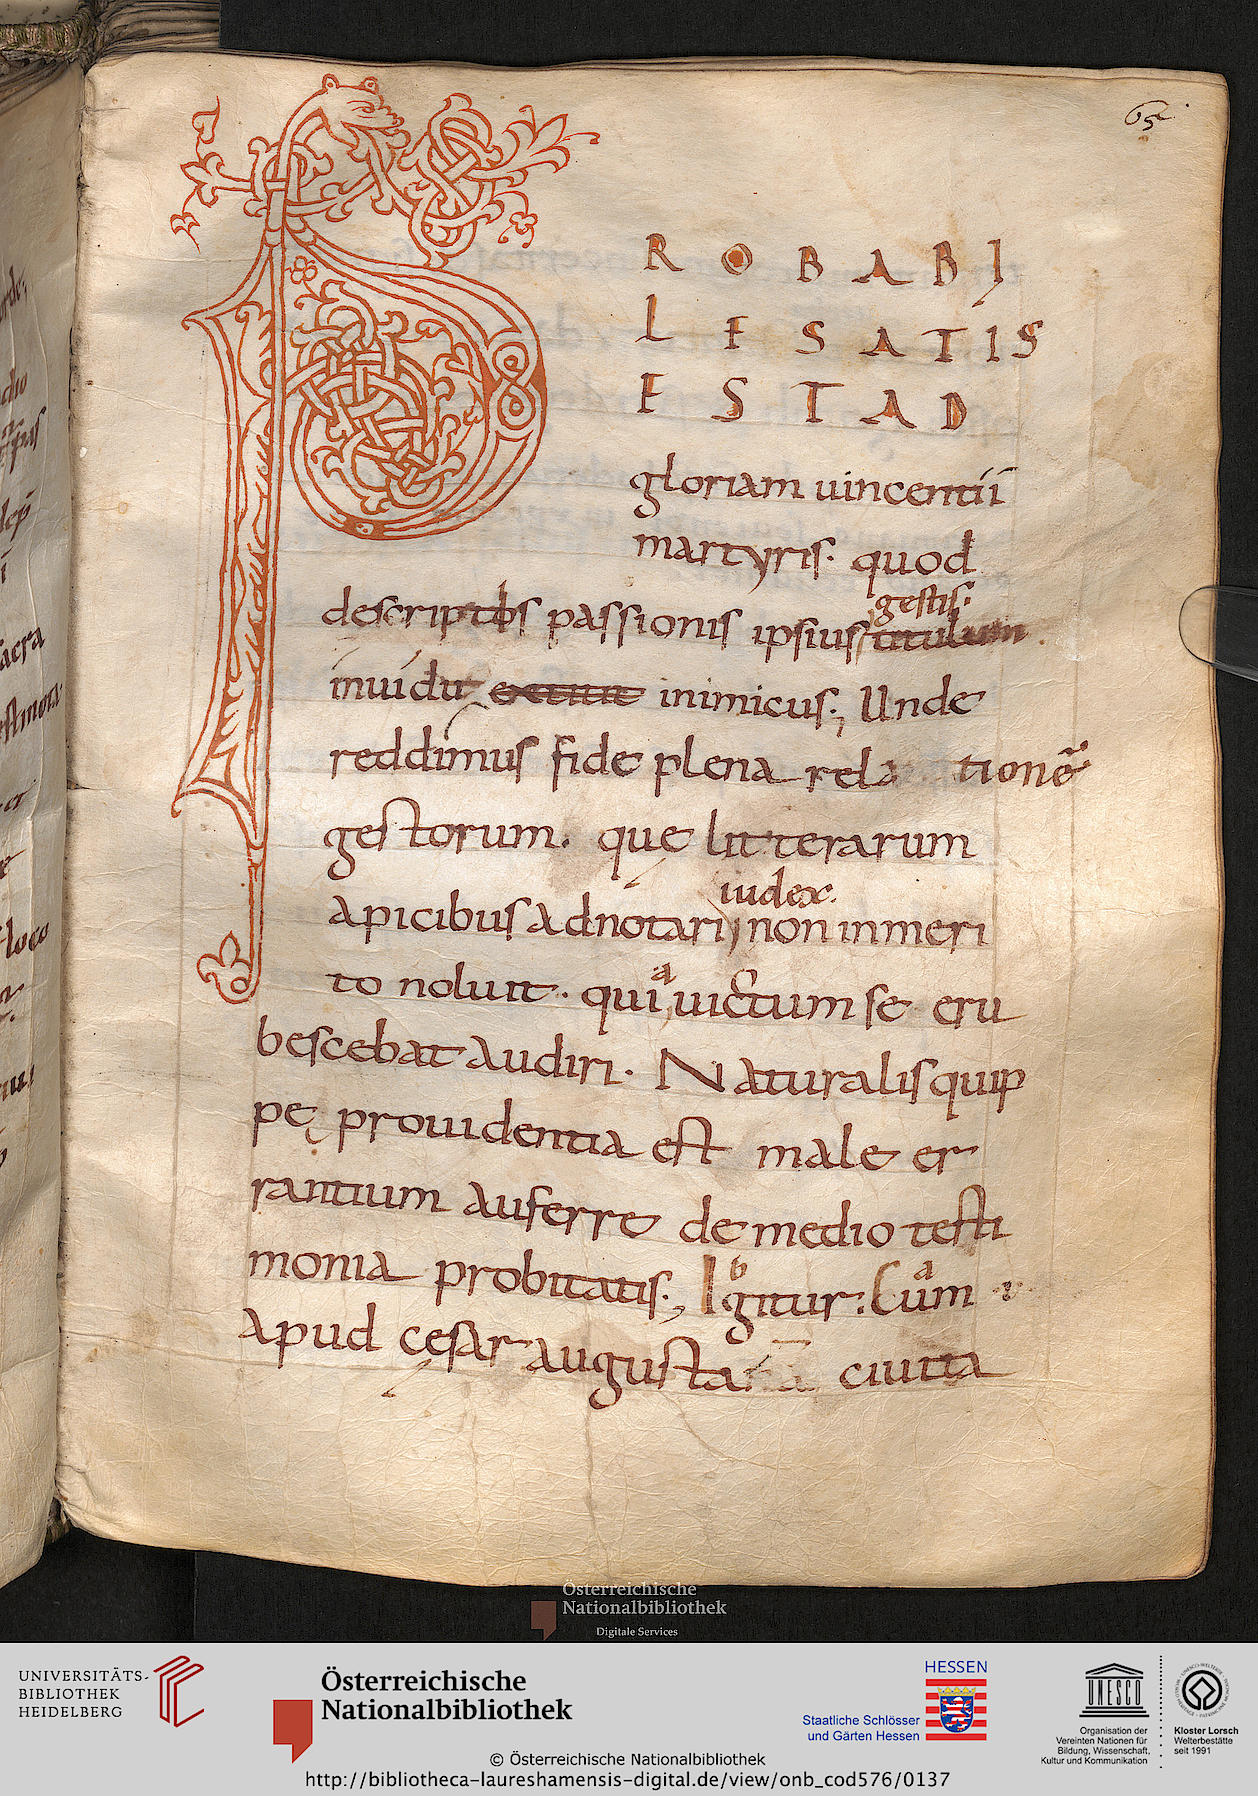 65
P
ROBABI
LESATIS
ESTAD
gloriam uincentii
martyris. quod
gestis:
descriptos passionis ipsius titulum
inuidit inimicus; Unde
reddimus fide plena rela tionē
gestorum. que litterarum
iudex.
apicibus adnotari non inmeri
to noluit. quia uictum se eru
bescebat audiri. Naturalis quip
pe prouidentia est male er
rantium auferre de medio testi
monia probitatis; Igitur: Cum
apud cesar augusta ciuita
Österreichische
Nationalbibliothek
Digitale Services
UNIVERSITÄTS-
BIBLIOTHEK
HEIDELBERG
Österreichische
Nationalbibliothek
HESSEN
Staatliche Schlösser
und Gärten Hessen
UNESCO
Organisation der
Vereinten Nationen für
Bildung, Wissenschaft,
Kultur und Kommunikation
Kloster Lorsch
Welterbestätte
seit 1991
© Österreichische Nationalbibliothek
http://bibliotheca-laureshamensis-digital.de/view/onb_cod576/0137